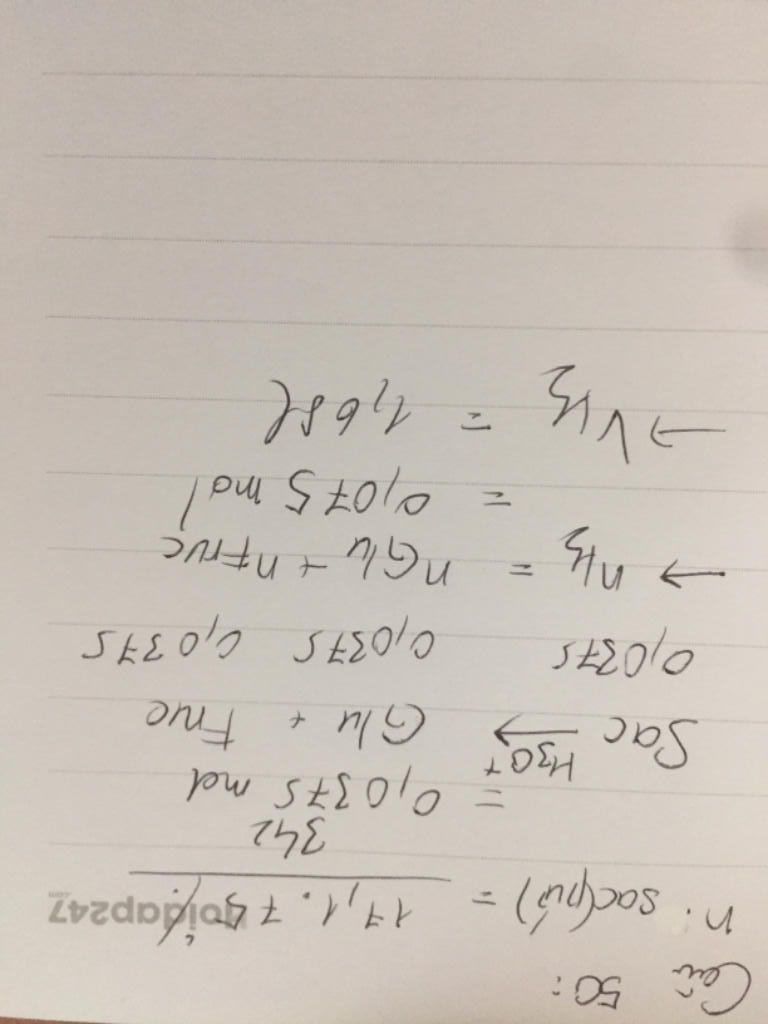 Câu 50:
n sac(pứ) = 17,1.75% / 342
= 0,0375 mol
Sac H3O+ → Glu + Fruc
0,0375 0,0375 0,0375
→ nH2 = nGlu + nFruc
= 0,075 mol
→ VH2 = 1,68l
hoidap247.com